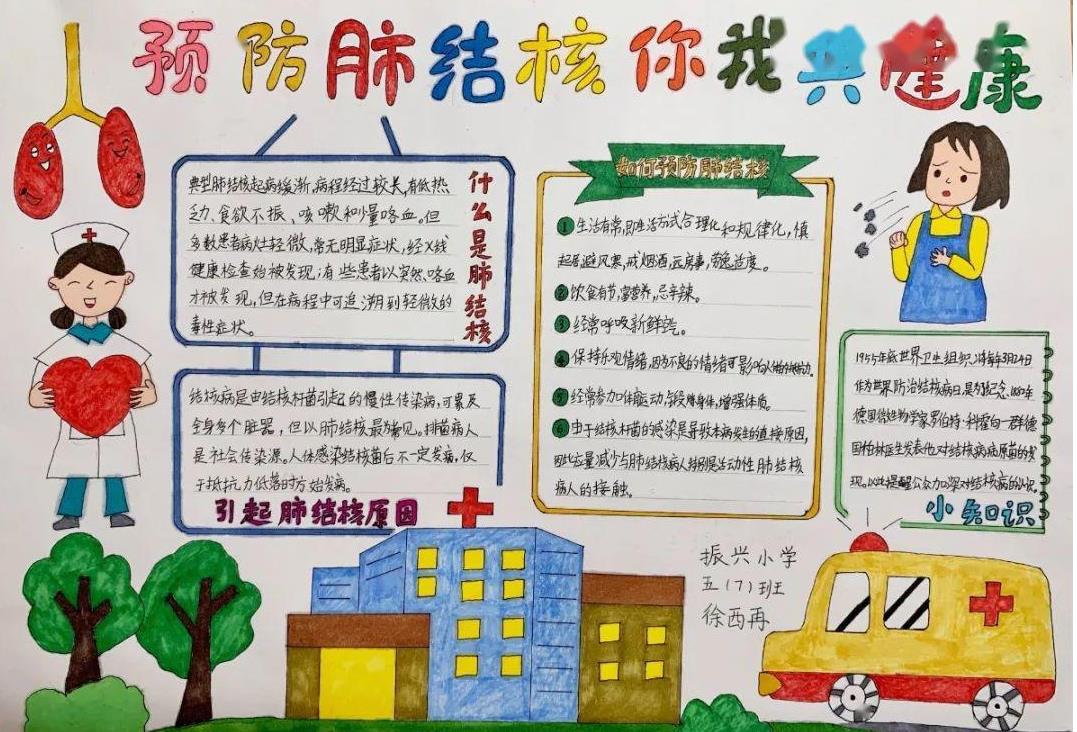 预防肺结核你我共健康
什么是肺结核
典型肺结核起病缓渐,病程经过较长,有低热
乏力、食欲不振、咳嗽和少量咯血。但
多数患者病灶轻微,常无明显症状,经X线
健康检查始被发现;有些患者以突然咯血
才被发现,但在病程中可追溯到轻微的
毒性症状。
结核病是由结核杆菌引起的慢性传染病,可累及
全身多个脏器,但以肺结核最为常见。排菌病人
是社会传染源。人体感染结核菌后不一定发病,仅
于抵抗力低落时方始发病。
引起肺结核原因
如何预防肺结核
1 生活有常,即生活方式合理化和规律化,慎
起居避风寒,戒烟酒,远房事,劳逸适度。
2 饮食有节,富营养,忌辛辣。
3 经常呼吸新鲜空气。
4 保持乐观情绪,因为不良的情绪可影响人体的抵抗力。
5 经常参加体育运动,锻炼身体,增强体质。
6 由于结核杆菌的感染是导致本病发生的直接原因,
因此应量减少与肺结核病人特别是活动性肺结核
病人的接触。
1955年底世界卫生组织将每年3月24日
作为世界防治结核病日,是为纪念1882年
德国微生物学家罗伯特·科霍向一群德
国柏林医生发表他对结核病病原菌的发
现。以此提醒公众加深对结核病的认识。
小知识
振兴小学
五(7)班
徐西再